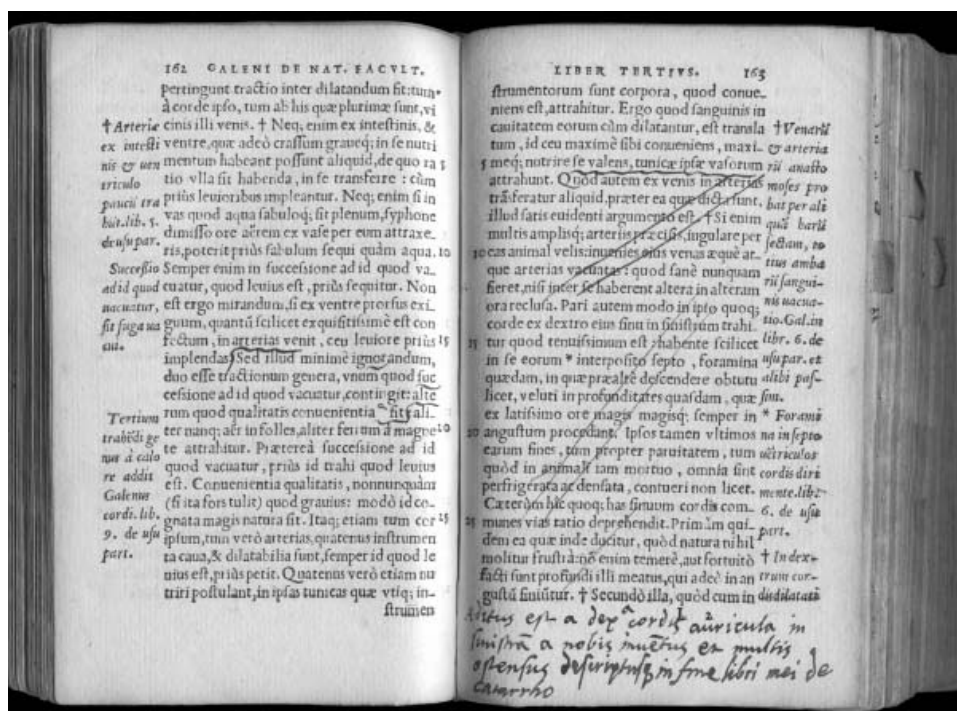 162 GALENI DE NAT. FACVLT.
pertingunt tractio inter dilatandum fit: tum
à corde ipso, tum ab his quæ plurimæ sunt, vi
cinis illi venis. † Neq; enim ex intestinis, &
ventre, quæ adeò crassum graueq; in se nutri
mentum habeant possunt aliquid, de quo ra 5
tio vlla sit habenda, in se transferre: cùm
priùs leuioribus impleantur. Neq; enim si in
vas quod aqua sabuloq; sit plenum, syphone
dimisso ore aërem ex vase per eum attraxe‐
ris, poterit priùs sabulum sequi quàm aqua. 10
Semper enim in successione ad id quod va‐
cuatur, quod leuius est, priùs sequitur. Non
est ergo mirandum, si ex ventre prorsus exi
guum, quantū scilicet exquisitissimè est con
fectum, in arterias venit, ceu leuiore priùs 15
implendas. Sed illud minimè ignorandum,
duo esse tractionum genera, vnum quod suc
cessione ad id quod vacuatur, contingit: alte
rum quod qualitatis conuenientia fit; ali‐
ter nanq; aër in folles, aliter ferrum à magne 20
te attrahitur. Prætereà successione ad id
quod vacuatur, priùs id trahi quod leuius
est. Conuenientia qualitatis, nonnunquàm
(si ita fors tulit) quod grauius: modò id co‐
gnata magis natura sit. Itaq; etiam tum cor 25
ipsum, tum verò arterias, quatenus instrumen
ta caua, & dilatabilia sunt, semper id quod le
uius est, priùs petit. Quatenus verò etiam nu
triri postulant, in ipsas tunicas quæ vtiq; in‐
strumen
† Arteriæ
ex intesti
nis & uen
triculo
paucū tra
hūt. lib. 5.
de usu par.
Successio
ad id quod
uacuatur,
fit fuga ua
cui.
Tertium
trahēdi ge
nus à calo
re addit
Galenus
cordi. lib.
9. de usu
part.
LIBER TERTIVS. 163
strumentorum sunt corpora, quod conue‐
niens est, attrahitur. Ergo quod sanguinis in
cauitatem eorum cùm dilatantur, est transla
tum, id ceu maximè sibi conueniens, maxi‐
5 meq; nutrire se valens, tunicæ ipsæ vasorum
attrahunt. Quòd autem ex venis in arterias
trāsferatur aliquid, præter ea quæ dicta sunt,
illud satis euidenti argumento est. † Si enim
multis amplisq; arteriis præcisis, iugulare per
10 eas animal velis: inuenies eius venas æquè at‐
que arterias vacuatas: quod sanè nunquam
fieret, nisi inter se haberent altera in alteram
ora reclusa. Pari autem modo in ipso quoq;
corde ex dextro eius sinu in sinistrum trahi
15 tur quod tenuissimum est: habente scilicet
in se eorum * interposito septo, foramina
quædam, in quæ præaltè descendere obtutu
licet, veluti in profunditates quasdam, quæ
ex latissimo ore magis magisq; semper in
20 angustum procedant. Ipsos tamen vltimos
earum fines, tum propter paruitatem, tum
quòd in animali iam mortuo, omnia sint
perfrigerata ac densata, contueri non licet.
Cæterùm hîc quoq; has sinuum cordis com‐
25 munes vias ratio deprehendit. Primùm qui‐
dem ea quæ inde ducitur, quòd natura nihil
molitur frustrà: nō enim temerè, aut fortuitò
facti sunt profundi illi meatus, qui adeò in an
gustū finiūtur. † Secundò illa, quòd cum in
† Venarū
& arteria
rū anasto
moses pro
bat per ali
quā barū
sectam, to
tius amba
rū sangui‐
nis uacua‐
tio. Gal. in
libr. 6. de
usu par. et
alibi pas‐
sim.
* Foramī
na in septo
uētriculos
cordis diri
mente. lib.
6. de usu
part.
† In dex‐
trum cor‐
dis dilatatū
Aditus est a dex.a cordis auricula in
sinistrā a nobis inuētus et multis
ostensus descriptusq; in fine libri mei de
catarrho